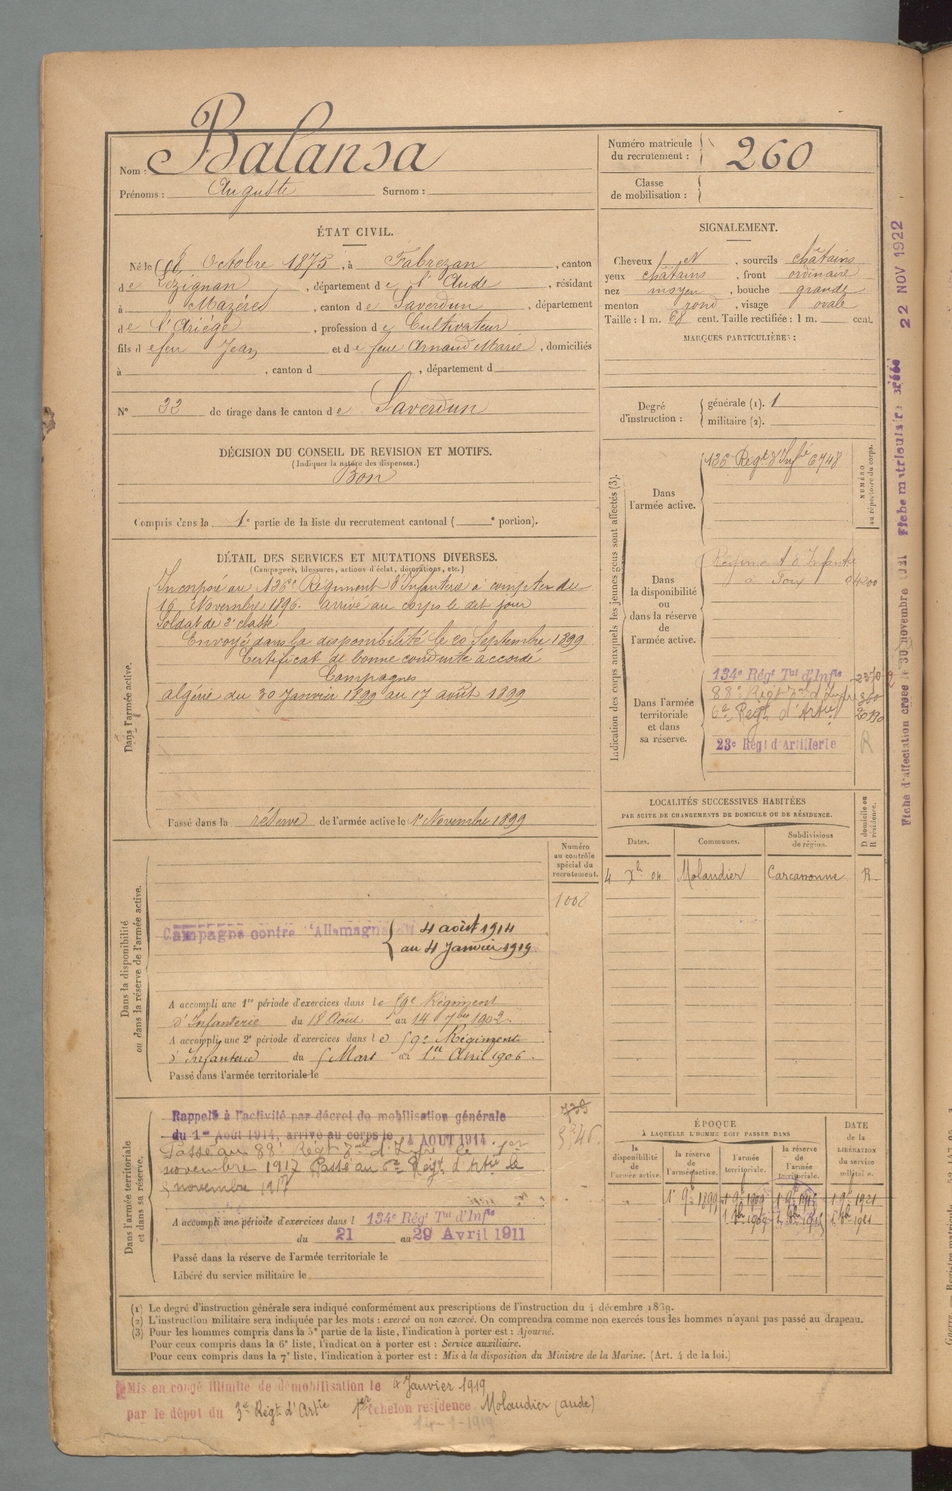 Nom : Balansa
Prénoms : Auguste Surnom :
Numéro matricule du recrutement : 260
Classe de mobilisation :
ÉTAT CIVIL.
Né le Octobre 1875, à Fabrezan, canton
de Lézignan, département de l'Aude, résidant
à Mazères, canton de Saverdun, département
de l'Ariège, profession de Cultivateur
fils de feu Jean et de feue Arnaud Marie, domiciliés
à , canton d , département d
N° 32 de tirage dans le canton de Saverdun
SIGNALEMENT.
Cheveux et , sourcils châtains
yeux châtains, front ordinaire
nez moyen, bouche grande
menton rond, visage ovale
Taille : 1 m. 68 cent. Taille rectifiée : 1 m. cent.
MARQUES PARTICULIÈRES :
Degré d'instruction : générale (1). 1
militaire (2).
DÉCISION DU CONSEIL DE REVISION ET MOTIFS.
(Indiquer la nature des dispenses.)
Bon
Compris dans la 1e partie de la liste du recrutement cantonal ( e portion).
DÉTAIL DES SERVICES ET MUTATIONS DIVERSES.
(Campagnes, blessures, actions d'éclat, décorations, etc.)
Dans l'armée active.
Incorporé au 136e Régiment d'Infanterie à compter du
16 Novembre 1896. arrivé au corps le dit jour
Soldat de 2e classe
Envoyé dans la disponibilité le 20 Septembre 1899
Certificat de bonne conduite accordé
Campagnes
Algérie du 30 Janvier 1899 au 17 août 1899
Passé dans la réserve de l'armée active le 1er Novembre 1899
Indication des corps auxquels les jeunes gens sont affectés (3).
NUMÉRO au répertoire du corps.
Dans l'armée active.
136e Régt d'Infie 6748
Dans la disponibilité ou dans la réserve de l'armée active.
Régiment d'Infanterie
à Foix
Dans l'armée territoriale et dans sa réserve.
134e Rég Tal d'Infie
83e Régt Tal d'Infie
6e Régt d'Artie
23e Régt d'Artillerie R
LOCALITÉS SUCCESSIVES HABITÉES
PAR SUITE DE CHANGEMENTS DE DOMICILE OU DE RÉSIDENCE.
Dates. Communes. Subdivisions de région. D domicile ou R résidence.
4 Xbre 04 Molandier Carcassonne R
Dans la disponibilité ou dans la réserve de l'armée active.
Numéro au contrôle spécial du recrutement.
Campagne contre l'Allemagne du 4 août 1914
au 4 Janvier 1919
A accompli une 1re période d'exercices dans le 59e Régiment
d'Infanterie du 18 Août au 14 7bre 1902.
A accompli une 2e période d'exercices dans le 59e Régiment
d'Infanterie du 5 Mars au 1er Avril 1906.
Passé dans l'armée territoriale le
Dans l'armée territoriale et dans sa réserve.
Rappelé à l'activité par décret de mobilisation générale
du 1er Août 1914, arrivé au corps le 14 AOUT 1914
Passé au 83e Régt Tal d'Infie le 1er
novembre 1917 Passé au 6e Régt d'Artie le
5 novembre 1917
A accompli une période d'exercices dans l 134e Rég Tal d'Infie
du 21 au 29 Avril 1911
Passé dans la réserve de l'armée territoriale le
Libéré du service militaire le
ÉPOQUE
À LAQUELLE L'HOMME DOIT PASSER DANS
la disponibilité de l'armée active. la réserve de l'armée active. l'armée territoriale. la réserve de l'armée territoriale. DATE de la LIBÉRATION du service militaire.
1er 9bre 1899 1er 9bre 1909 1er 9bre 1915 1er 9bre 1921
1er 8bre 1909 1er 8bre 1915 1er 8bre 1921
(1) Le degré d'instruction générale sera indiqué conformément aux prescriptions de l'instruction du 4 décembre 1889.
(2) L'instruction militaire sera indiquée par les mots : exercé ou non exercé. On comprendra comme non exercés tous les hommes n'ayant pas passé au drapeau.
(3) Pour les hommes compris dans la 5e partie de la liste, l'indication à porter est : Ajourné.
Pour ceux compris dans la 6e liste, l'indication à porter est : Service auxiliaire.
Pour ceux compris dans la 7e liste, l'indication à porter est : Mis à la disposition du Ministre de la Marine. [Art. 4 de la loi.]
Mis en congé illimité de démobilisation le Janvier 1919
par le dépôt du 3e Régt d'Artie 1er échelon residence Molandier (aude)
14-1-1919
Fiche d'affectation créée le 30 novembre Fiche matriculaire créée 22 NOV 1922